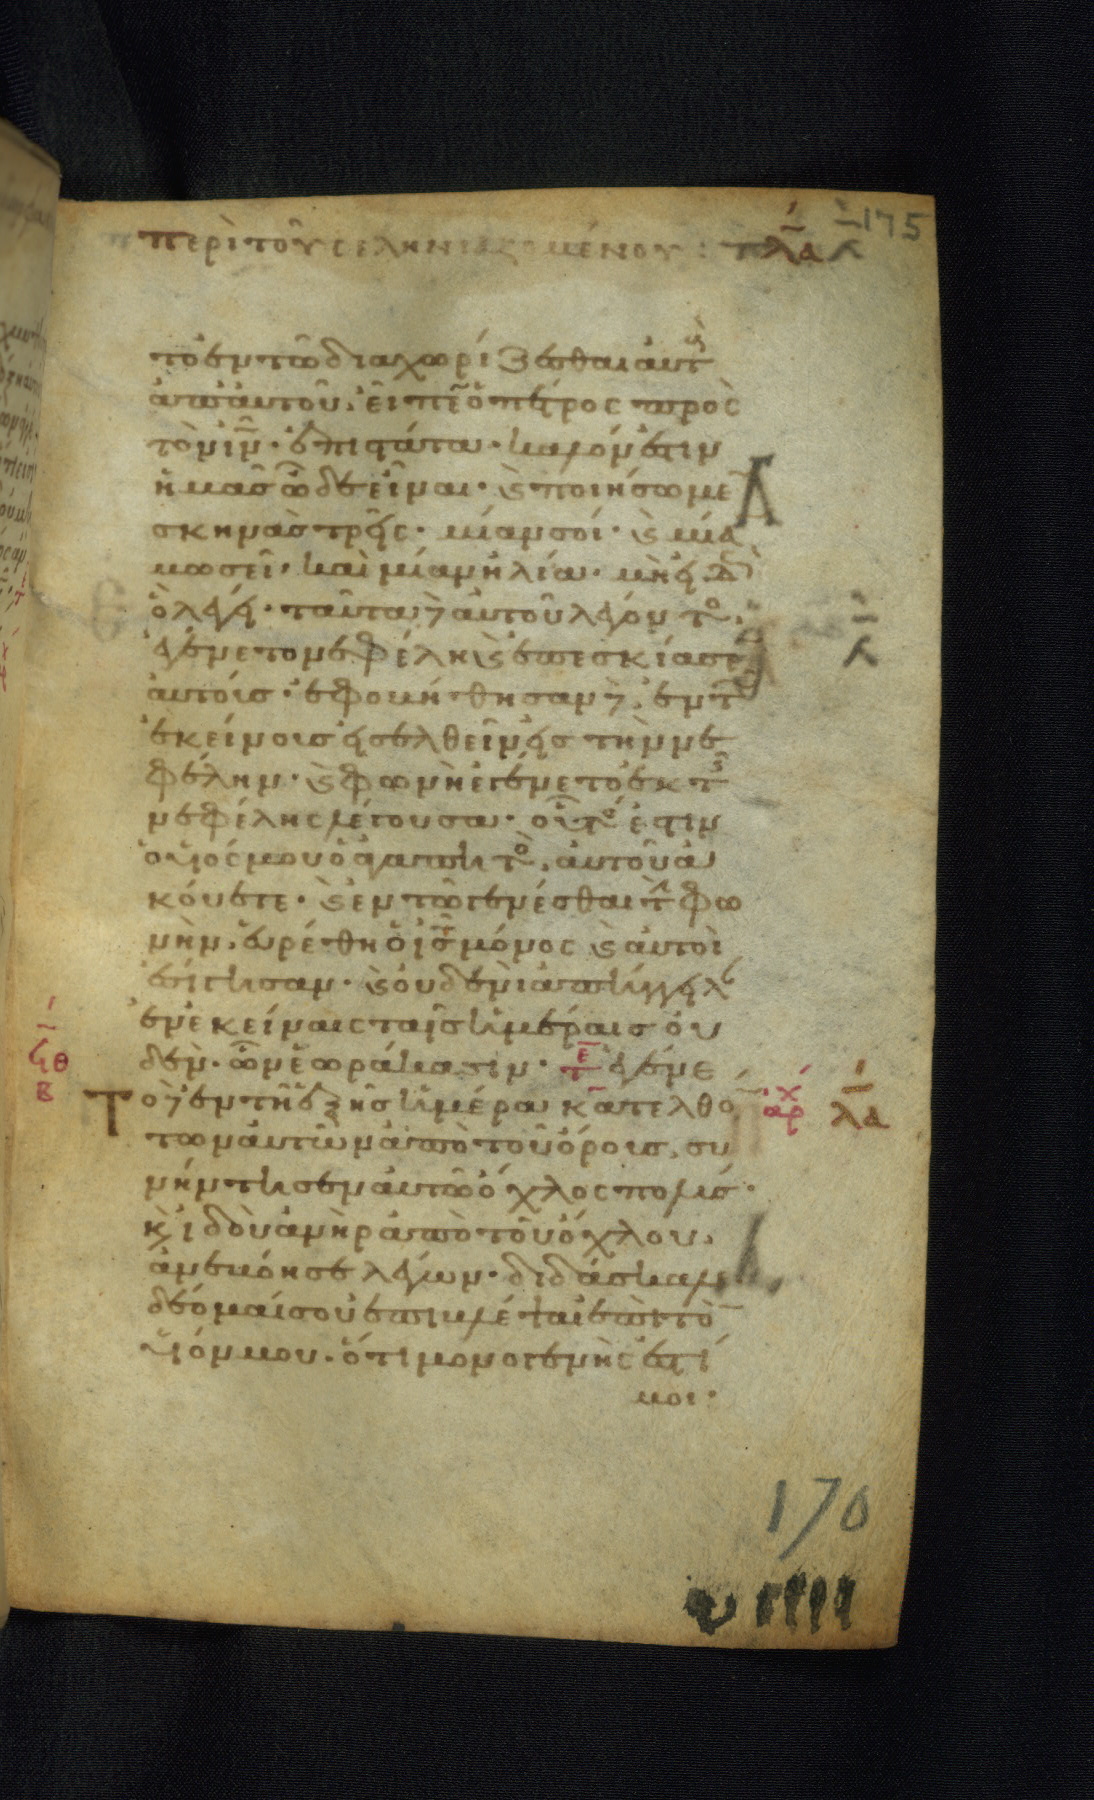 περὶ τοῦ σεληνιαζομένου : λα
175
το ἐν τῶ διαχωρίζεσθαι αὐτ
ἀπ αὐτοῦ. εἶπεν ὁ πέτρος πρὸς
τὸν ιν. ἐπιστάτα. καλόν ἐστιν
ἡμᾶς ὧδε εἶναι. ϗ ποιήσωμε
σκηνὰς τρεῖς. μίαν σοί. ϗ μία
μωσεῖ. καὶ μίαν ἠλία. μὴ εἰδ
ὃ λέγει. ταῦτα δὲ αὐτοῦ λέγοντο
ἐγένετο νεφέλη ϗ ἐπεσκίασε
αὐτοίς. ἐφοβήθησαν δὲ ἐν τ
ἐκείνοις εἰσελθεῖν εἰς τὴν νε
φέλην. ϗ φωνὴ ἐγένετο ἐκ τ
νεφέλης λέγουσα. οὗτο ἐστιν
ὁ υἱός μου ὁ ἀγαπητο. αὐτοῦ ἀ
κούετε. ϗ ἐν τῶ γενέσθαι τ φω
νὴν. εὑρέθη ὁ ις μόνος ϗ αὐτοὶ
ἐσίγησαν. ϗ οὐδενὶ ἀπήγγειλ
ἐν ἐκείναις ταῖς ἡμέραις οὐ
δεν. ὧν ἑωράκασιν. τε ἐγένε
Το δὲ ἐν τῆ ἑξῆς ἡμέρα κατελθο
των αὐτῶν ἀπὸ τοῦ ὄρους, συ
νήντησεν αὐτῶ ὄχλος πολύς.
ϗ ἰδοὺ ἀνὴρ ἀπὸ τοῦ ὄχλου.
ἀνεβόησε λέγων. διδάσκαλε
δέομαί σου ἐπιβλέψαι ἐπὶ τὸ
υἱόν μου. ὅτι μονογενὴς ἐστί
μοι.
λ
β
αρχ
λα
170